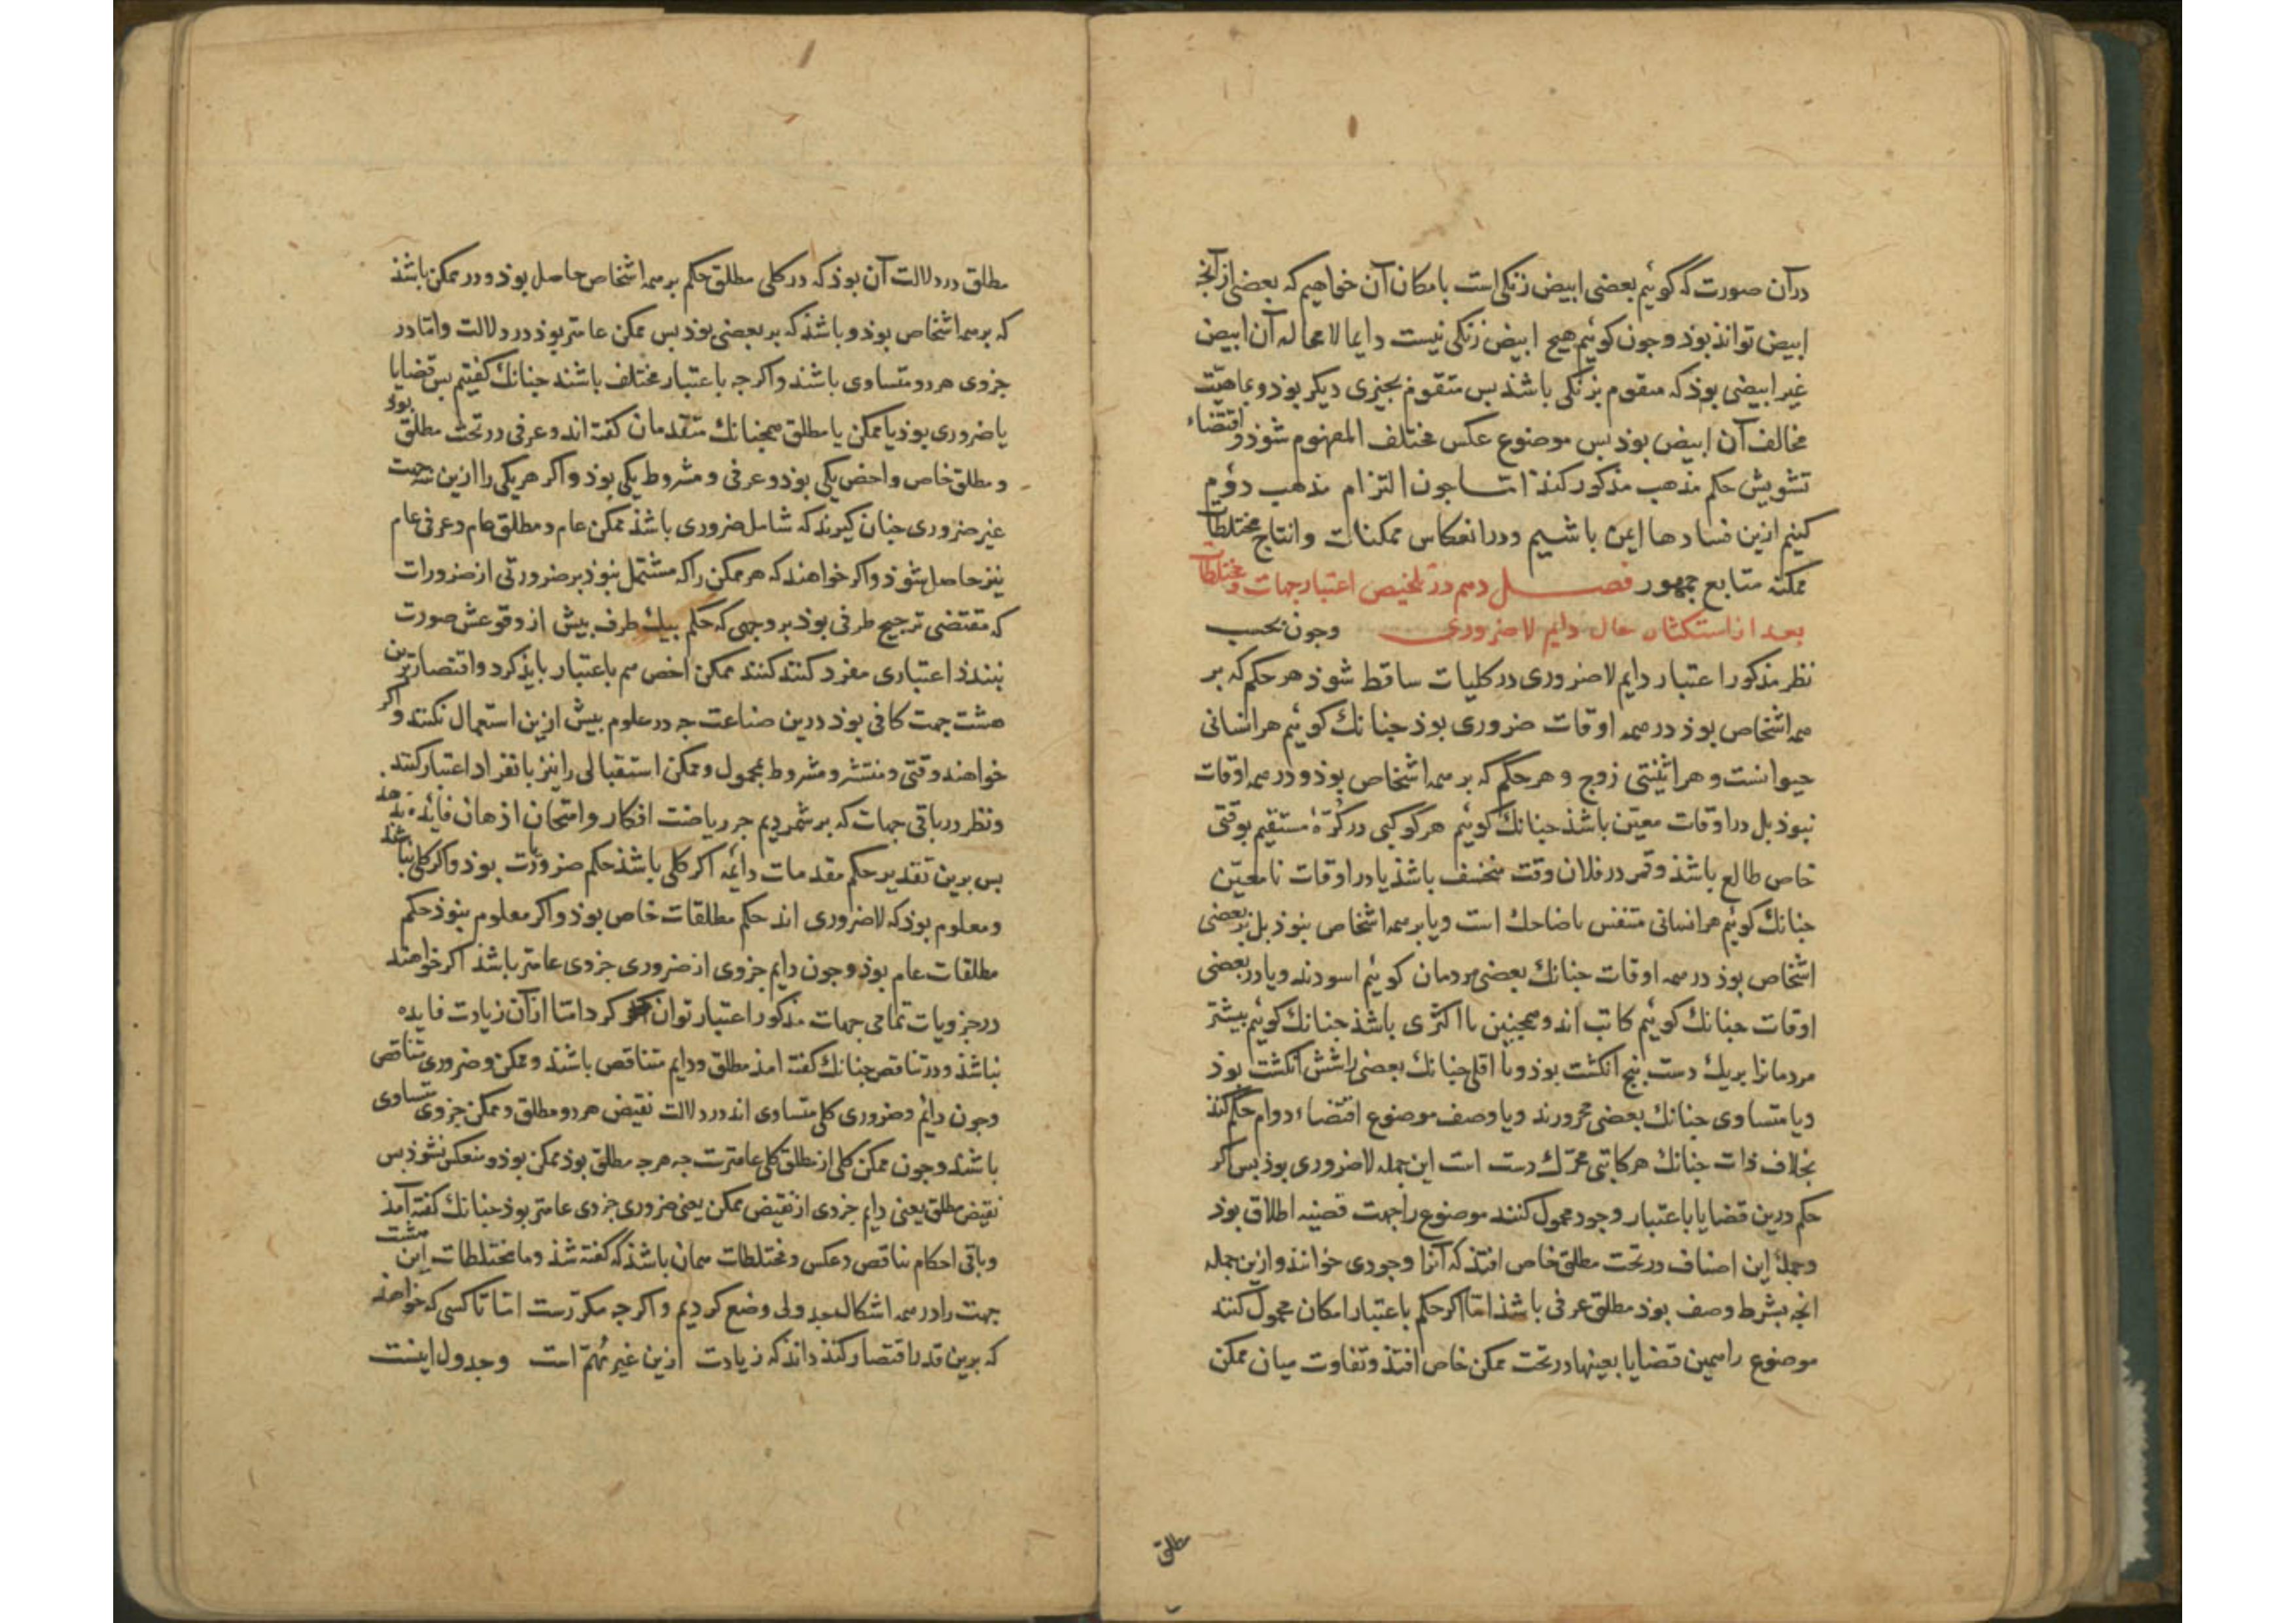 درآن صورت که گوئیم بعضی ابیض زنکی است بامکان آن خواهیم که بعضی از آنج
ابیض تواند بوذ وجون کوئیم هیچ ابیض زنکی نیست دایما لا محاله آن ابیض
غیر ابیضی بوذ که متقوم بزنکی باشذ بس متقوم بجیزی دیکر بوذ و بماهیت
مخالف آن ابیض بوذ بس موضوع عکس مختلف المفهوم شوذ و اقتضاء
تشویش حکم مذهب مذکور کند اما جون التزام مذهب دوم
کنیم ازین فسادها ایمن باشیم ودر انعکاس ممکنات وانتاج مختلطات
ممکنه متابع جمهور فصل دهم در تلخیص اعتبار جهات و مختلطات
بعد از استکشاف حال دایم لاضروری وجون بحسب
نظر مذکور اعتبار دایم لاضروری در کلیات ساقط شوذ هر حکم که بر
همه اشخاص بوذ در همه اوقات ضروری بوذ جنانک کوئیم هر انسانی
حیوانست و هر اثنینتی زوج و هر حکم که بر همه اشخاص بوذ و در همه اوقات
نبوذ بل در اوقات معین باشذ جنانک کوئیم هر کوکبی در کرّهٔ مستقیم بوقتی
خاص طالع باشذ وقمر در فلان وقت منخسف باشذ یا در اوقات نامعیّن
جنانک کوئیم هر انسانی متنفس یا ضاحک است ویا بر همه اشخاص نبوذ بل بر بعضی
اشخاص بوذ در همه اوقات جنانک بعضی مردمان کوئیم اسودند ویا در بعضی
اوقات جنانک کوئیم کاتب اند وهمجنین یا اکثری باشذ جنانک کوئیم بیشتر
مردمانرا بریک دست بنج انکشت بوذ ویا اقلی جنانک بعضی را شش انکشت بوذ
ویا متساوی جنانک بعضی محرورند ویا وصف موضوع اقتضاء دوام حکم کند
بخلاف ذات جنانک هر کاتبی محرّک دست است این جمله لاضروری بوذ بس اکر
حکم درین قضایا باعتبار وجود محمول کنند موضوع را جهت قضیه اطلاق بوذ
وجملهٔ این اصناف در تحت مطلق خاص افتذ که آنرا وجودی خوانند وازین جمله
انجه بشرط وصف بوذ مطلق عرفی باشذ اما اکر حکم باعتبار امکان محمول کنند
موضوع را همین قضایا بعینها در تحت ممکن خاص افتذ وتفاوت میان ممکن
مطلق
مطلق در دلالت آن بوذ که در کلی مطلق حکم بر همه اشخاص حاصل بوذ و در ممکن باشذ
که بر همه اشخاص بوذ و باشذ که بر بعضی بوذ بس ممکن عامتر بوذ در دلالت واما در
جزوی هر دو متساوی باشند واکرجه باعتبار مختلف باشند جنانک کفتیم بس قضایا
یا ضروری بوذ یا ممکن یا مطلق همجنانک متقدمان کفته اند وعرفی در تحت مطلق بوذ
و مطلق خاص واخص یکی بوذ و عرفی و مشروط یکی بوذ واکر هر یکی را ازین سه جهت
غیر ضروری جنان کیرند که شامل ضروری باشذ ممکن عام و مطلق عام و عرفی عام
نیز حاصل شوذ واکر خواهند که هر ممکن را که مشتمل نبوذ بر ضرورتی از ضرورات
که مقتضی ترجیح طرفی بوذ بر وجهی که حکم بیک طرف بیش از وقوعش صورت
نبندذ اعتباری مفرد کنند کنند ممکن اخص هم باعتبار بایذ کرد واقتصار برین
هشت جهت کافی بوذ درین صناعت جه در علوم بیش ازین استعمال نکنند واکر
خواهند وقتی و منتشر و مشروط بمحمول وممکن استقبالی را نیز بانفراد اعتبار کنند
ونظر در باقی جهات که برشمردیم جز ریاضت افکار وامتحان اذهان فایده ندهد
بس برین تقدیر حکم مقدمات دایمه اکر کلی باشذ حکم ضروریات بوذ واکر کلی نباشد
ومعلوم بوذ که لاضروری اند حکم مطلقات خاص بوذ واکر معلوم نبوذ حکم
مطلقات عام بوذ وجون دایم جزوی از ضروری جزوی عامتر باشذ اکر خواهند
در جزویات تمامی جهات مذکور اعتبار توان کرد اما از آن زیادت فایده
نباشذ ودر تناقض جنانک کفته امذ مطلق ودایم متناقض باشند وممکن وضروری متناقض
وجون دایم وضروری کلی متساوی اند در دلالت نقیض هر دو مطلق وممکن جزوی متساوی
باشند وجون ممکن کلی از مطلق کلی عامترست جه هرجه مطلق بوذ ممکن بوذ و منعکس نشوذ بس
نقیض مطلق یعنی دایم جزوی از نقیض ممکن یعنی ضروری جزوی عامتر بوذ جنانک کفته آمذ
وباقی احکام تناقض وعکس ومختلطات همان باشذ که کفته شذ وما مختلطات این هشت
جهت را در همه اشکال جدولی وضع کردیم واکرجه مکررست اما تا کسی که خواهذ
که برین قدر اقتصار کند داند که زیادت ازین غیر مُهمّ است وجدول اینست